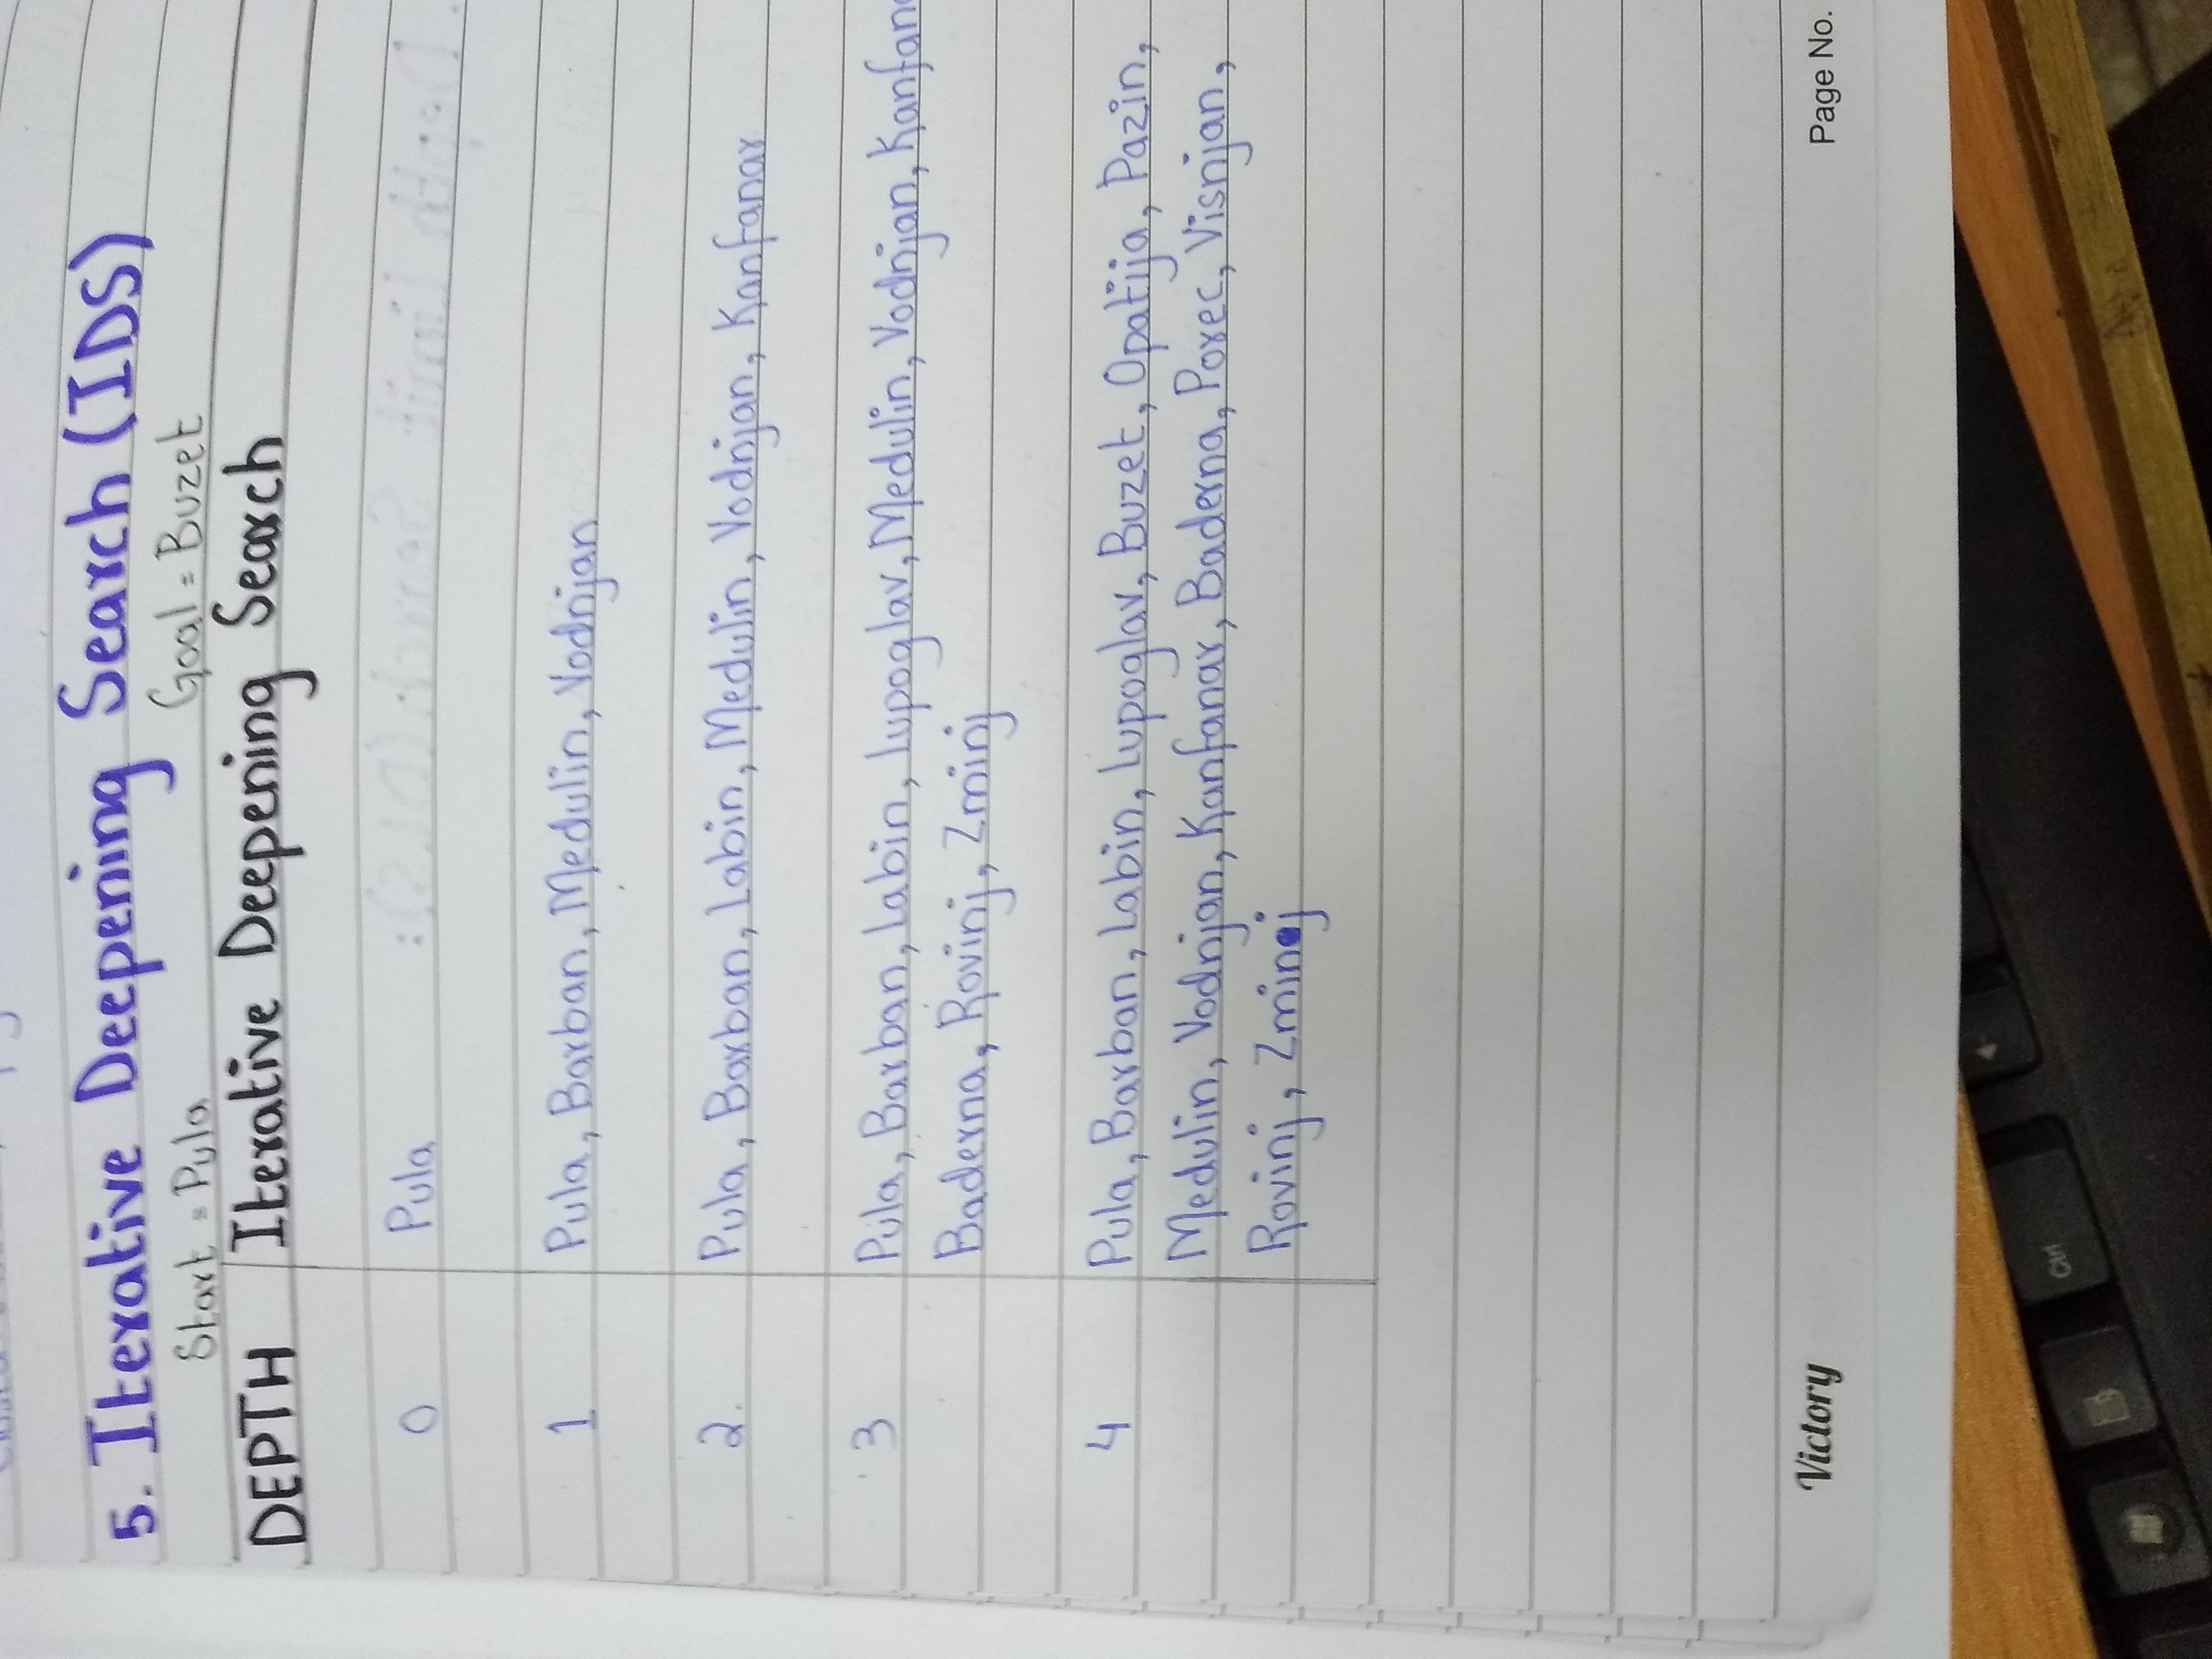 5. Iterative Deepening Search (IDS)
Start = Pula Goal = Buzet
DEPTH Iterative Deepening Search
0 Pula
1 Pula, Barban, Medulin, Vodnjan
2. Pula, Barban, Labin, Medulin, Vodnjan, Kanfanar
3 Pula, Barban, Labin, Lupoglav, Medulin, Vodnjan,
Baderna, Rovinj, Zminj
4 Pula, Barban, Labin, Lupoglav, Buzet, Opatija, Pazin,
Medulin, Vodnjan, Kanfanar, Baderna, Porec, Visnjan,
Rovinj, Zminj
Victory Page No.
Ctrl